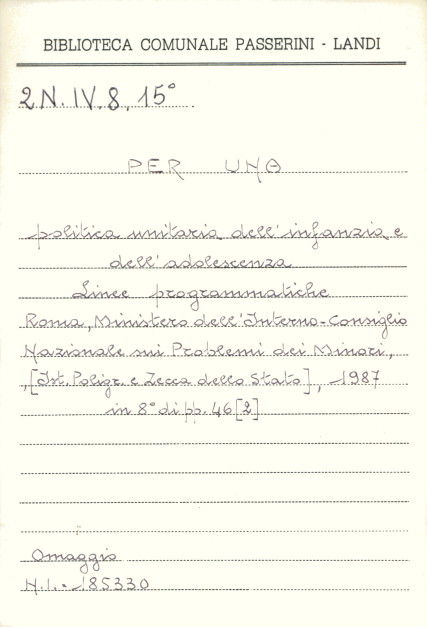 BIBLIOTECA COMUNALE PASSERINI - LANDI
2N.IV.8, 15°
PER UNA
politica unitaria dell'infanzia e
dell'adolescenza
Linee programmatiche
Roma, Ministero dell'Interno-Consiglio
Nazionale sui Problemi dei Minori,
,[Ist. Poligr. e Zecca dello Stato], 1987
in 8° di pp. 46[2]
Omaggio
N.I. - 185330